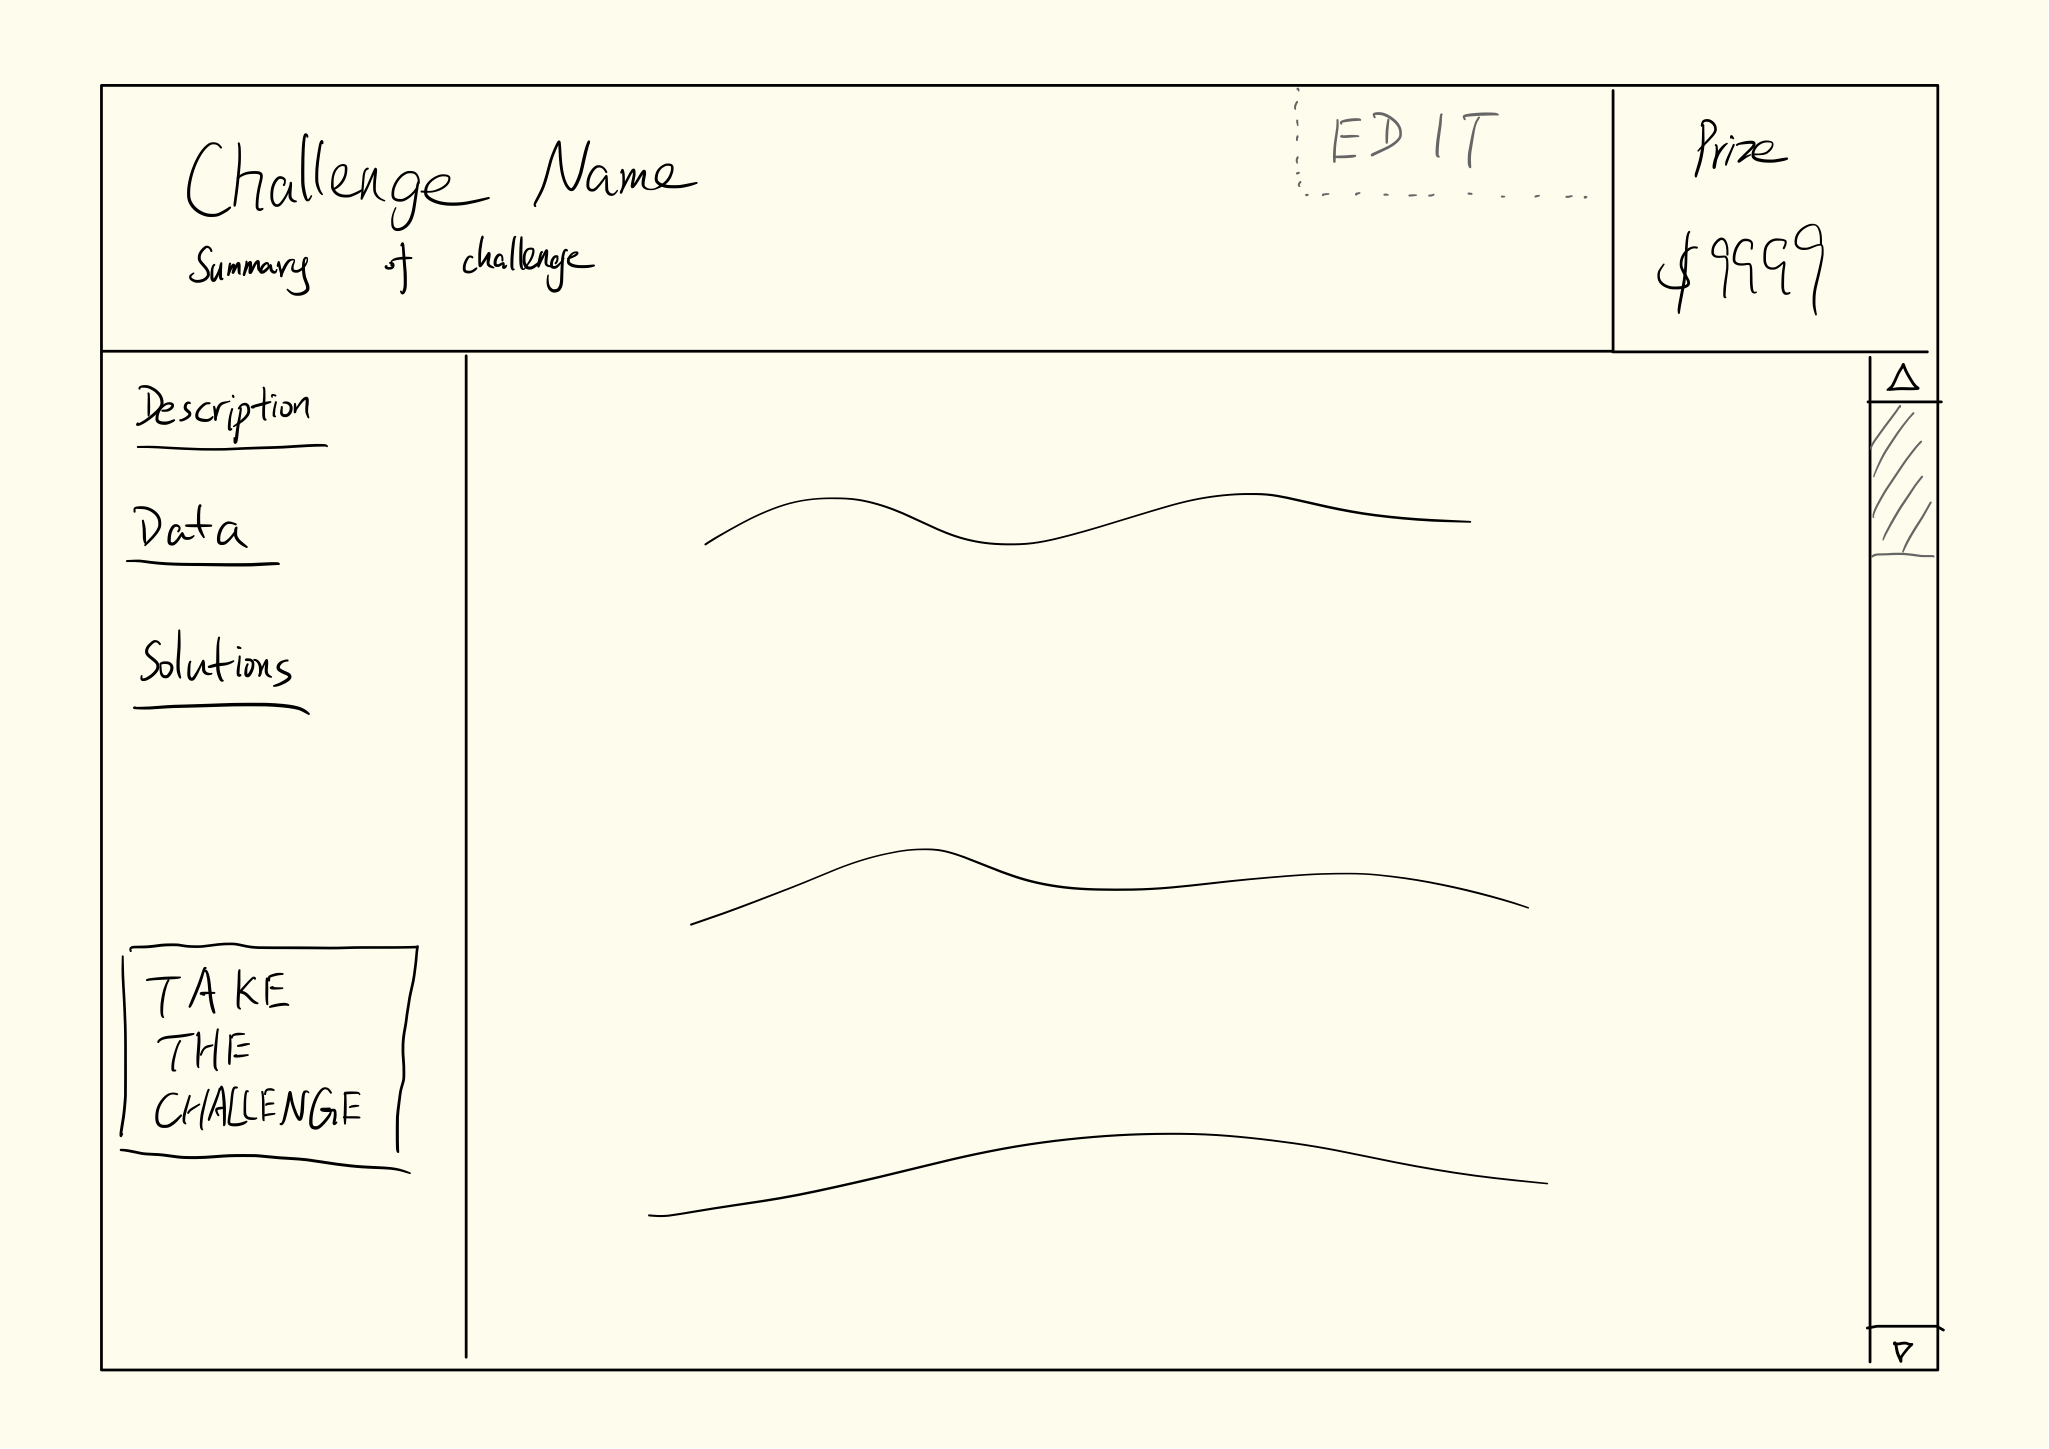 Challenge Name
Summary of challenge
EDIT
Prize
$9999
Description
Data
Solutions
TAKE
THE
CHALLENGE